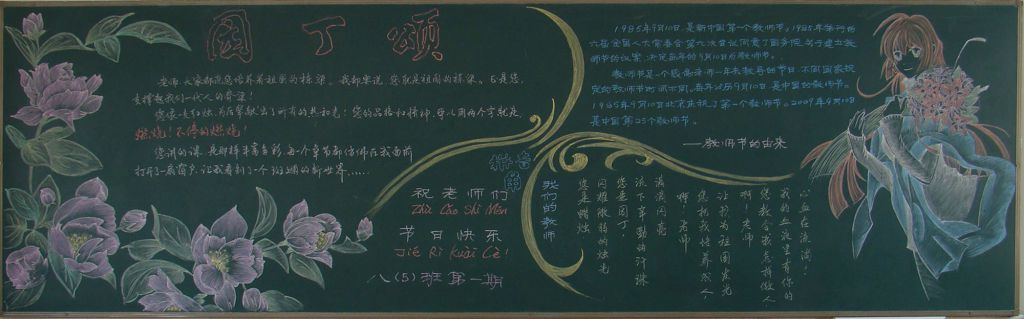 园丁颂
老师,大家都说您培养着祖国的栋梁。我却要说,您就是祖国的栋梁。正是您,
支撑起我们一代人的脊梁!
您像一支红烛,为后辈献出了所有的热和光!您的品格和精神,可以用两个字就是
燃烧!不停的燃烧!
您讲的课,是那样丰富多彩,每一个章节都仿佛在我面前
打开了一扇窗户,让我看到了一个斑斓的新世界......
祝老师们
Zhù Lǎo Shī Men
节日快乐
Jié Rì Kuài Lè!
八(5)班第一期
1985年9月10日,是新中国第一个教师节。1985年举行的
六届全国人大常委会第九次会议同意了国务院关于建立教
师节的议案,决定每年的9月10日为教师节。
教师节是一个感谢老师一年来教导的节日,不同国家规
定的教师节时间不同。每年公历9月10日是中国的教师节。
1985年9月10日北京庆祝了第一个教师节。2009年9月10日
是中国第25个教师节。
——教师节的由来
我们的教师
您是蜡烛
闪耀微弱的烛光
您是园丁,
流下辛勤的汗珠
滴滴闪亮
啊!老师
您把我培养成人
让我为祖国发光
啊!老师
您教会我怎样做人
我的血液里有你的
心血在流淌!